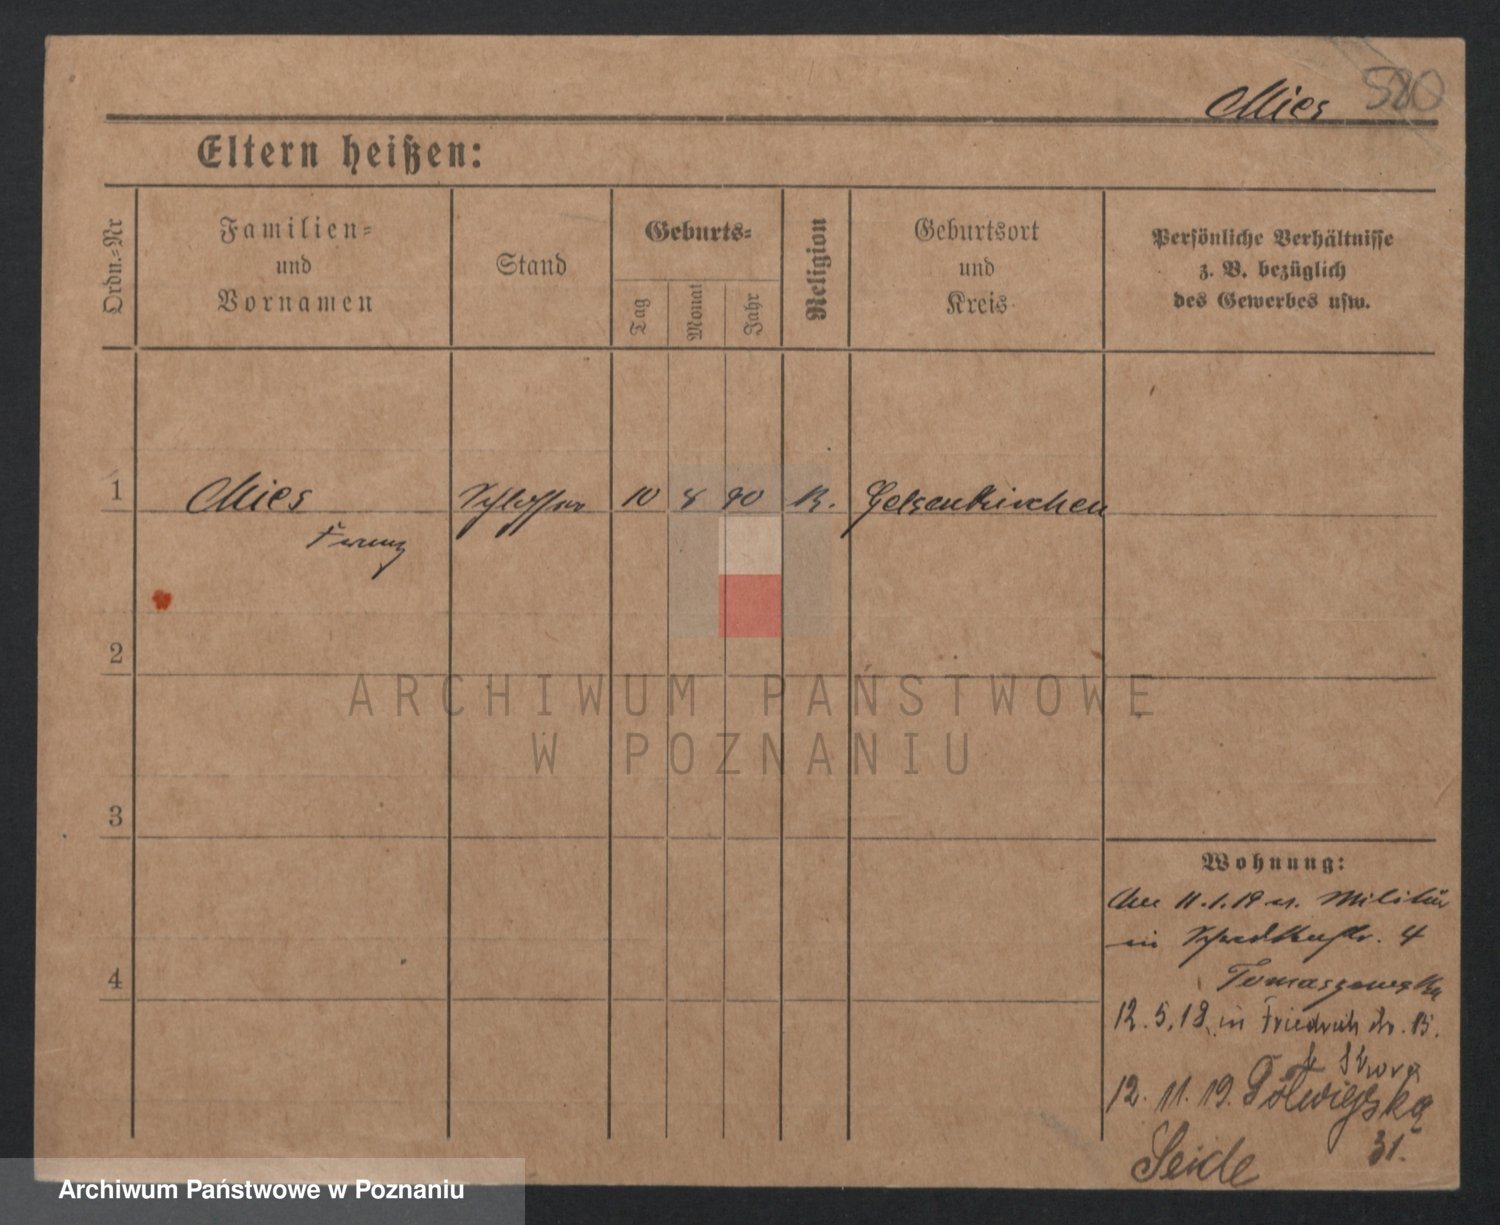 Mies 580
Eltern heißen:
Ordn.-Nr
Familien-
und
Vornamen
Stand
Geburts-
Tag
Monat
Jahr
Religion
Geburtsort
und
Kreis
Persönliche Verhältnisse
z. B. bezüglich
des Gewerbes usw.
1 Mies Schlosser 10 8 90 K. Gelsenkirchen
Franz
2
3
4
Wohnung:
11.1.19 v. Militär
in 4
Tomaszewska
12.5.19 in Friedrich str.
Skora
12.11.19. Półwiejska
31.
Seide
ARCHIWUM PAŃSTWOWE
W POZNANIU
Archiwum Państwowe w Poznaniu